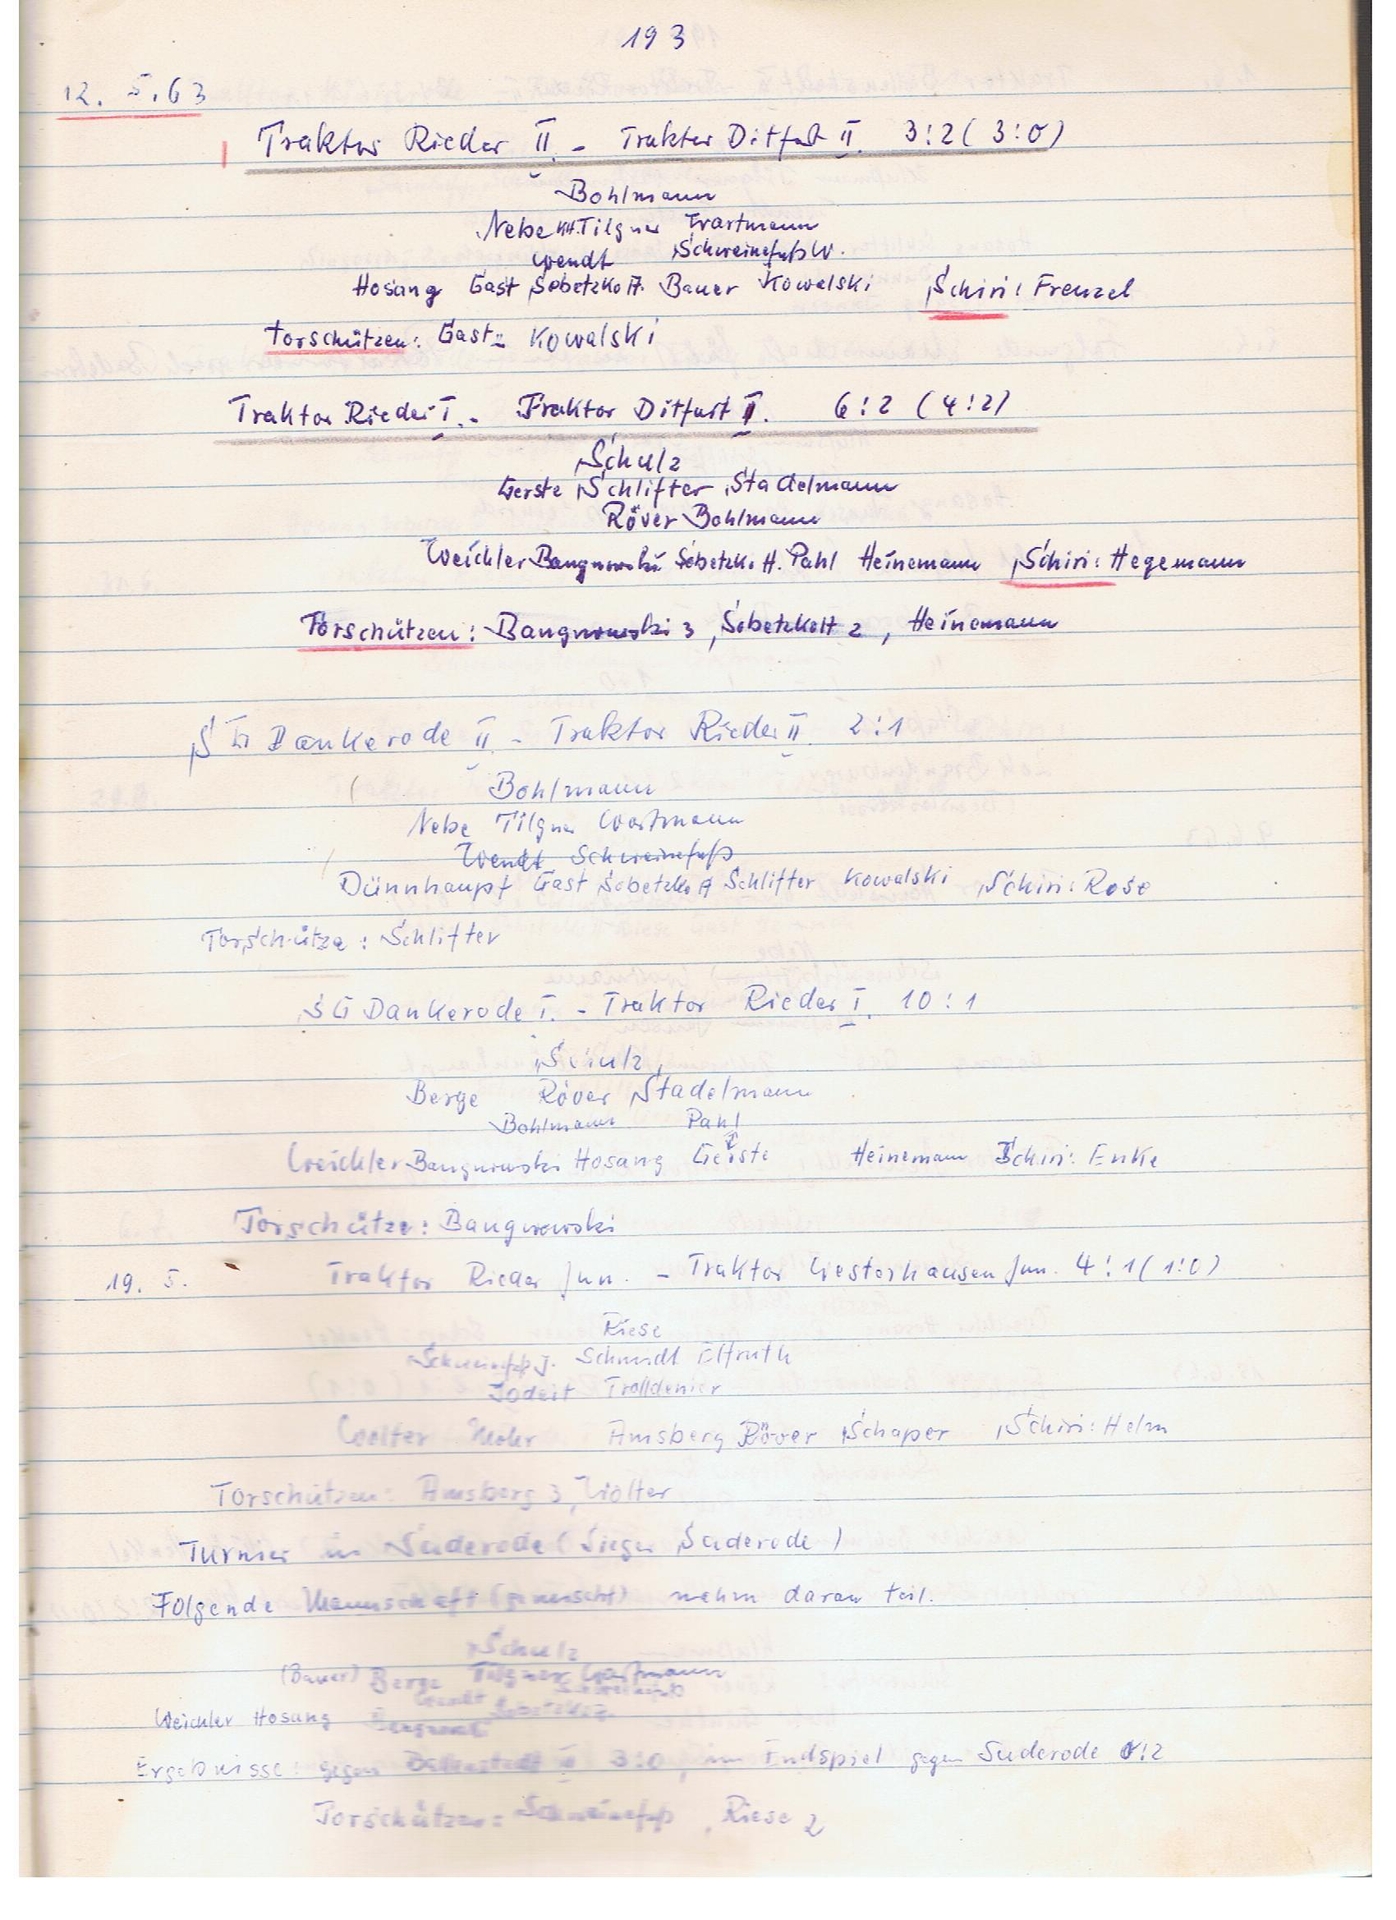 193
12. 5.63
Traktor Rieder II. - Traktor Ditfurt II. 3:2 (3:0)
Bohlmann
Nebe KH. Tilgner Wartmann
Wendt Schweinefuß W.
Hosang Gast Sobetzko A. Bauer Kowalski Schiri: Frenzel
Torschützen: Gast 2 Kowalski
Traktor Rieder I. - Traktor Ditfurt I. 6:2 (4:2)
Schulz
Gerste Schlifter Stadelmann
Röver Bohlmann
Weichler Bangnowski Sobetzko H. Pahl Heinemann Schiri: Hegemann
Torschützen: Bangnowski 3, Sobetzko H 2, Heinemann
SG Dankerode II - Traktor Rieder II. 2:1
Bohlmann
Nebe Tilgner Wartmann
Wendt Schweinefuß
Dünnhaupt Gast Sobetzko A Schlifter Kowalski Schiri: Rose
Torschütze: Schlifter
SG Dankerode I. - Traktor Rieder I. 10:1
Schulz
Berge Röver Stadelmann
Bohlmann Pahl
Weichler Bangnowski Hosang Gerste Heinemann Schiri: Enke
Torschütze: Bangnowski
19. 5. Traktor Rieder Jun. - Traktor Westerhausen Jun. 4:1 (1:0)
Riese
J. Schmidt Elfruth
Jodeit Trolldenier
Wolter Mohr Amsberg Röver Schaper Schiri: Helm
Torschützen: Amsberg 3, Wolter
Turnier in Suderode (Sieger Suderode)
Folgende Mannschaft (gemischt) nahm daran teil.
Schulz
(Bauer) Berge Tilgner Wartmann
Wendt Schweinefuß
Weichler Hosang
Ergebnisse: gegen Ballenstedt 3:0, im Endspiel gegen Suderode 0:2
Torschützen: Schweinefuß, Riese 2